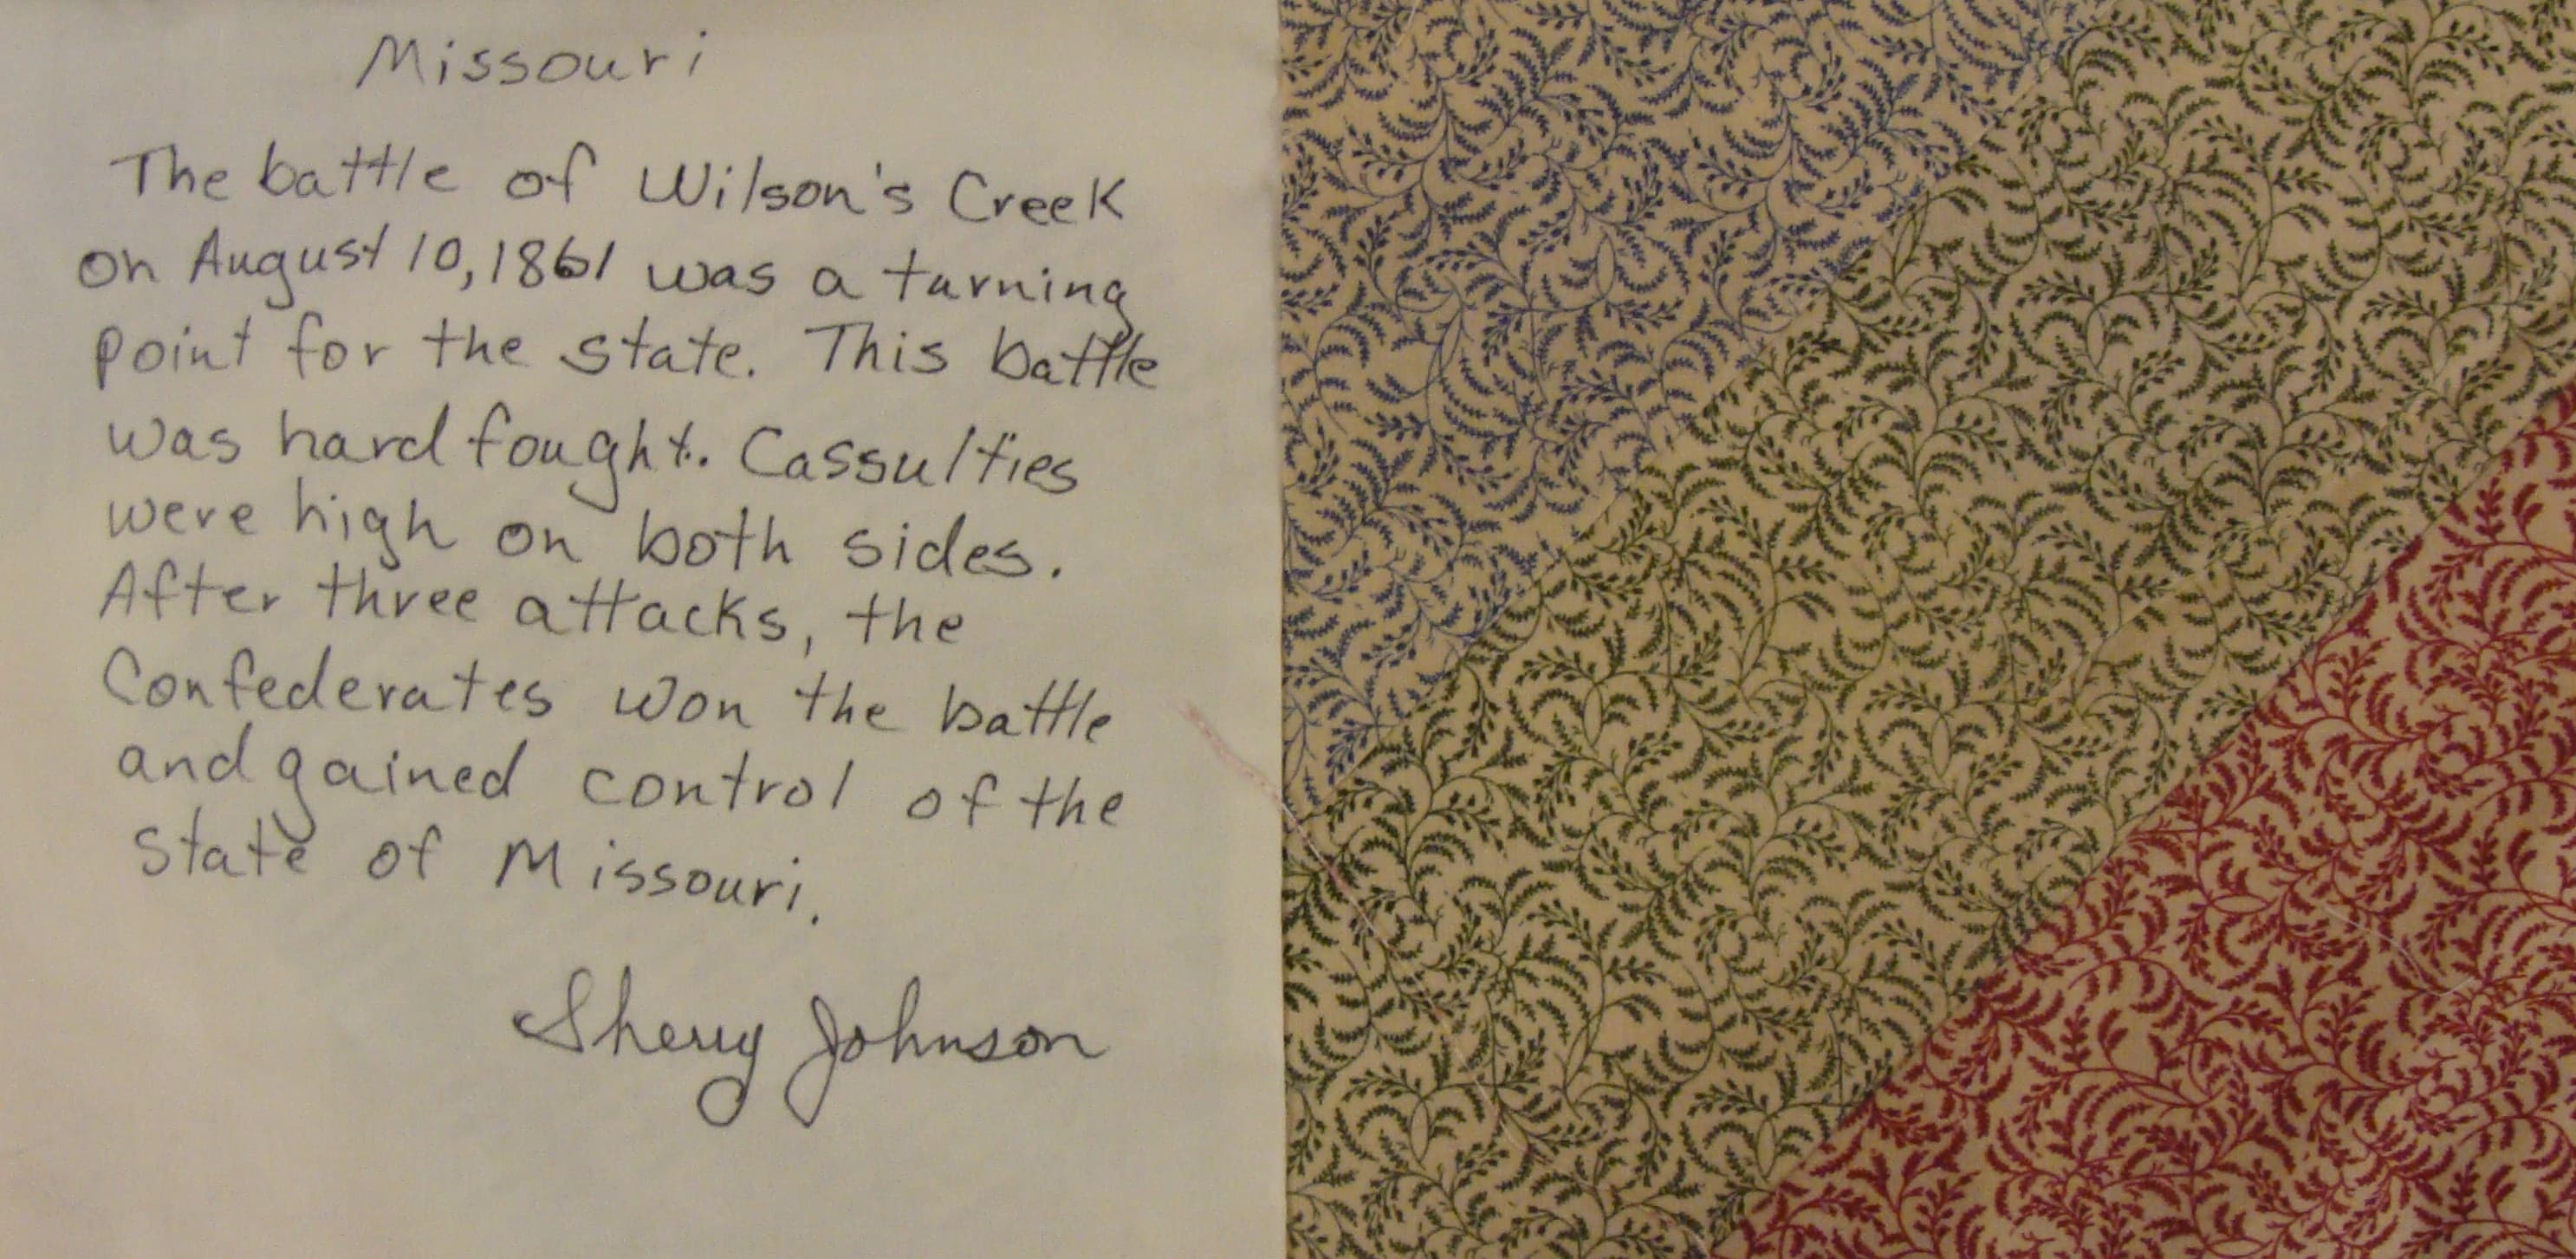 Missouri
The battle of Wilson's Creek
on August 10, 1861 was a turning
point for the state. This battle
was hard fought. Cassulties
were high on both sides.
After three attacks, the
Confederates won the battle
and gained control of the
state of Missouri.
Sherry Johnson